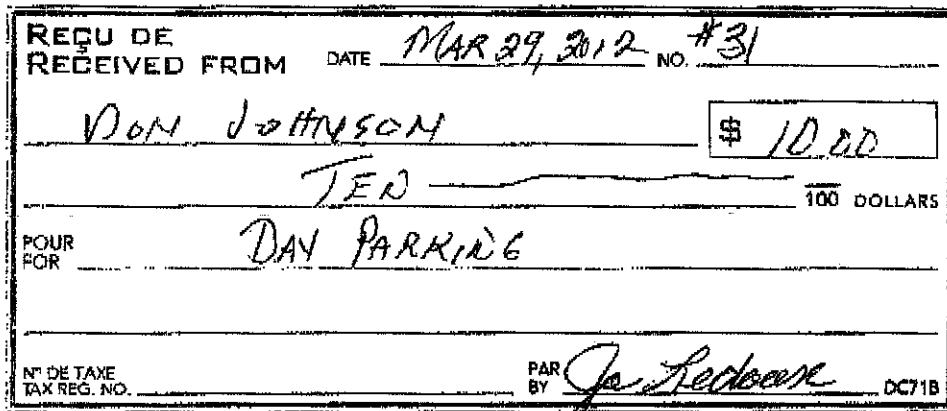 REÇU DE
RECEIVED FROM DATE MAR 29, 2012 NO. #31
DON JOHNSON $ 10.00
TEN 100 DOLLARS
POUR
FOR DAY PARKING
N° DE TAXE
TAX REG. NO. PAR
BY Jo DC71B